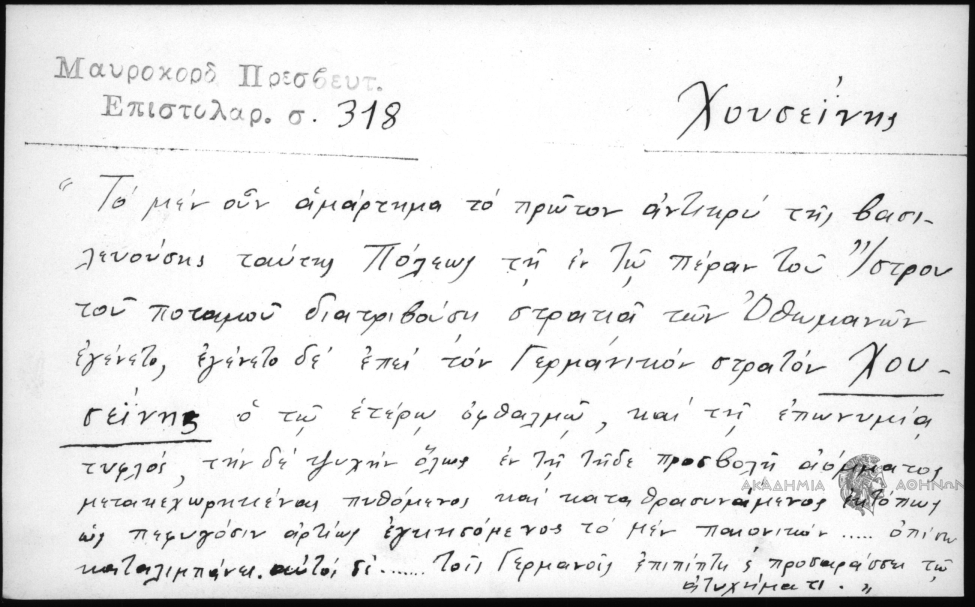 Μαυροκορδ Πρεσβευτ.
Επιστολαρ. σ. 318
Χουσεΐνης
“ Τό μέν οὖν ἁμάρτημα τό πρῶτον ἀντικρύ τῆς βασι-
λευούσης ταύτης Πόλεως τῇ ἐν τῷ πέραν τοῦ Ἴστρου
τοῦ ποταμοῦ διατριβούσῃ στρατιᾷ τῶν Ὀθωμανῶν
ἐγένετο, ἐγένετο δέ ἐπεί τόν Γερμανικόν στρατόν Χου-
σεΐνης ὁ τῷ ἑτέρῳ ὀφθαλμῷ, καί τῇ ἐπωνυμίᾳ
τυφλός, τήν δέ ψυχήν ὅλως ἐν τῇ τῇδε προσβολῇ ἀόμματος
μετακεχωρηκέναι πυθόμενος καί καταθρασυνάμενος ἐκτόπως
ὡς πεφυγόσιν ἀρτίως ἐγκησόμενος τό μέν παιονικόν ..... ὀπίσω
καταλιμπάνει. αὐτός δέ ....... τοῖς Γερμανοῖς ἐπιπίπτει προσαράσσει τῷ
ἀτυχήματι. „
ΑΚΑΔΗΜΙΑ ΑΘΗΝΩΝ